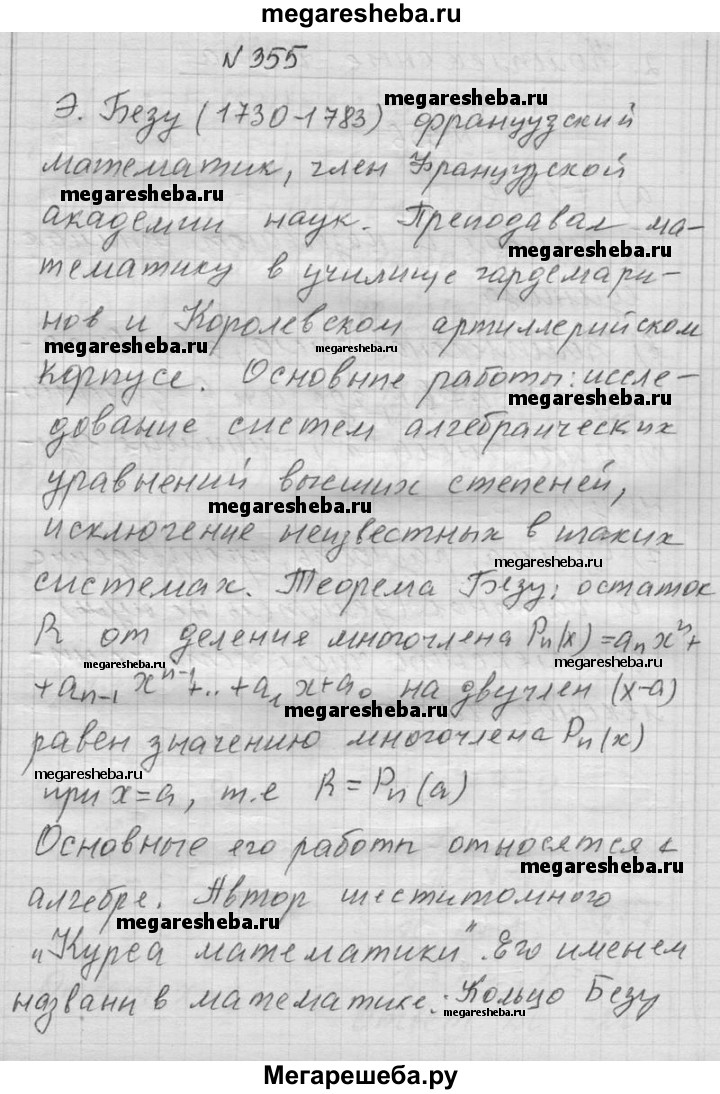 megaresheba.ru
№ 355
Э. Безу (1730-1783) французский
megaresheba.ru
математик, член Французской
megaresheba.ru
академии наук. Преподавал ма-
megaresheba.ru
тематику в училище гардемари-
нов и Королевском артиллерийском
megaresheba.ru
megaresheba.ru
корпусе. Основные работы: иссле-
megaresheba.ru
дование систем алгебраических
уравнений высших степеней,
megaresheba.ru
исключение неизвестных в таких
megaresheba.ru
системах. Теорема Безу: остаток
R от деления многочлена Pₙ(x)=aₙxⁿ+
megaresheba.ru
+aₙ₋₁xⁿ⁻¹+..+a₁x+a₀ на двучлен (x-a)
megaresheba.ru
равен значению многочлена Pₙ(x)
megaresheba.ru
при x=a, т.е R=Pₙ(a)
Основные его работы относятся к
megaresheba.ru
алгебре. Автор шеститомного
megaresheba.ru
„Курса математики". Его именем
названы в математике: Кольцо Безу
megaresheba.ru
Мегарешеба.ру